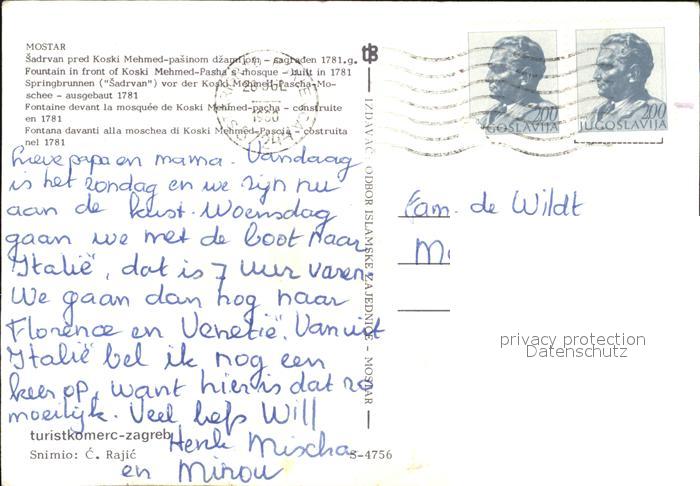 MOSTAR
Šadrvan pred Koski Mehmed-pašinom džamijom – sagrađen 1781.g.
Fountain in front of Koski Mehmed-Pasha's mosque – built in 1781
Springbrunnen ("Šadrvan") vor der Koski Mehmed-Pascha-Mo-
schee – ausgebaut 1781
Fontaine devant la mosquée de Koski Mehmed-pacha – construite
en 1781
Fontana davanti alla moschea di Koski Mehmed-Pascià – costruita
nel 1781
Lieve papa en mama. Vandaag
is het zondag en we zijn nu
aan de kust. Woensdag
gaan we met de boot naar
"Italië", dat is 7 uur varen.
We gaan dan nog naar
Florence en Venetië. Vanuit
Italië bel ik nog een
keer op, want hier is dat zo
moeilijk. Veel liefs Will
Henk Mischa
en Mirou
turistkomerc-zagreb
Snimio: Ć. Rajić
S-4756
IZDAVAČ: ODBOR ISLAMSKE ZAJEDNICE – MOSTAR
tB
2,00
JUGOSLAVIJA
2,00
JUGOSLAVIJA
1980
Fam. de Wildt
M
privacy protection
Datenschutz